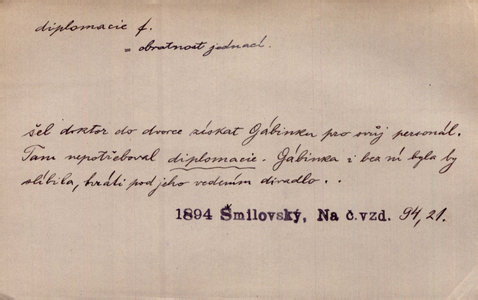 diplomacie f.
= obratnost jednací.
šel doktor do dvorce získat Gábinku pro svůj personál.
Tam nepotřeboval diplomacie. Gábinka i bez ní byla by
slíbila, hráti pod jeho vedením divadlo..
1894 Šmilovský, Na č.vzd. 94,21.